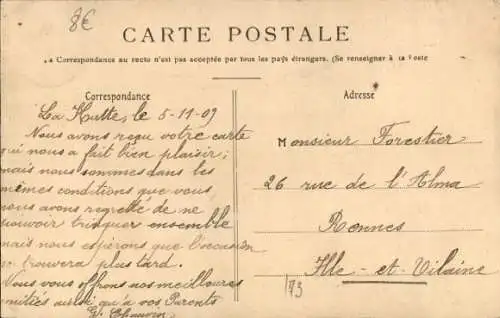 8€
CARTE POSTALE
a Correspondance au recto n'est pas acceptée par tous les pays étrangers. (Se renseigner à la Poste
Correspondance
Adresse
La Hutte, le 5-11-09
Nous avons reçu votre carte
qui nous a fait bien plaisir;
mais nous sommes dans les
mêmes conditions que vous,
nous avons regretté de ne
pouvoir trinquer ensemble
mais nous espérons que l'occasion
se trouvera plus tard.
Nous vous offrons nos meilleures
amitiés ainsi qu'à vos Parents
G. Chauvin
Monsieur Forestier
26 rue de l'Alma
Rennes
Ille-et-Vilaine
73